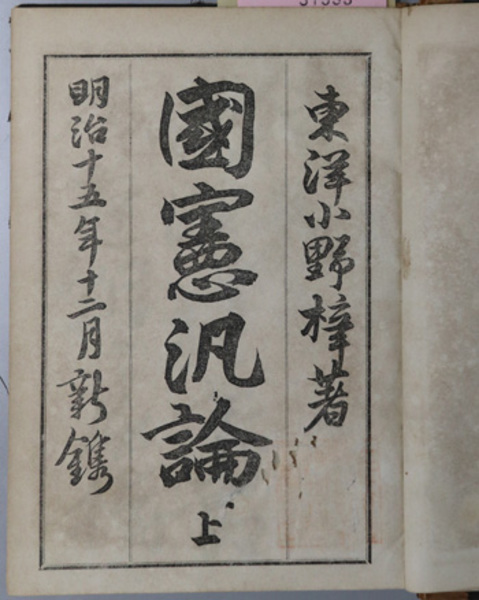 東洋小野梓著
國憲汎論 上
明治十五年十二月新鐫